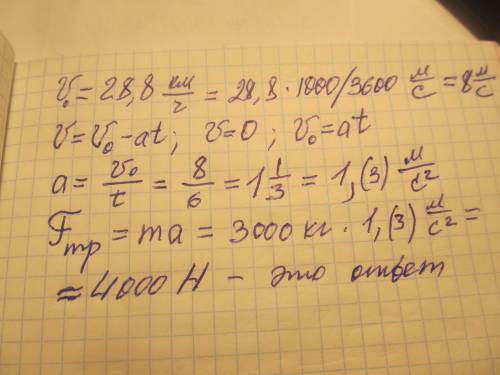 v₀ = 28,8 км/ч = 28,8 · 1000/3600 м/с = 8 м/с
v = v₀ - at; v = 0; v₀ = at
a = v₀/t = 8/6 = 1 1/3 = 1,(3) м/с²
Fтр = ma = 3000 кг · 1,(3) м/с² =
≈ 4000 Н - это ответ